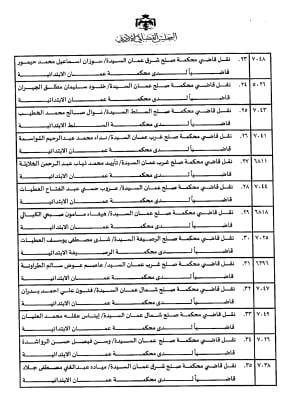 المجلس القضائي الأردني
٧٠٤٨ ٢٣. نقل قاضي محكمة صلح شرق عمان السيدة/ سوزان اسماعيل محمد حيمور
قاضياً لدى محكمة عمان الابتدائية
٥٠٢٦ ٢٤. نقل قاضي محكمة صلح عمان السيدة/ خلود سليمان مطلق الجبران
قاضياً لدى محكمة عمان الابتدائية
٧٠٤٣ ٢٥. نقل قاضي محكمة صلح السلط السيدة/ نوال صالح محمد الخطيب
قاضياً لدى محكمة السلط الابتدائية
٧٠٤١ ٢٦. نقل قاضي محكمة صلح غرب عمان السيدة/ نداء محمد عبدالرحيم القواسمة
قاضياً لدى محكمة عمان الابتدائية
٦٨١١ ٢٧. نقل قاضي محكمة صلح غرب عمان السيد/ محمد ذياب عبد الرحمن الخلايلة
قاضياً لدى محكمة عمان الابتدائية
٧٠٤٤ ٢٨. نقل قاضي محكمة صلح عمان السيدة/ عروب حمي عبد الفتاح العطيات
قاضياً لدى محكمة عمان الابتدائية
٦٨١٨ ٢٩. نقل قاضي محكمة صلح عمان السيدة/ هيفاء مأمون صبحي الكيالي
قاضياً لدى محكمة عمان الابتدائية
٧٠٢٥ ٣٠. نقل قاضي محكمة صلح الرصيفة السيدة/ شذى مصطفى يوسف العطيات
قاضياً لدى محكمة الرصيفة الابتدائية
٦٣٩٦ ٣١. نقل قاضي محكمة صلح غرب عمان السيد/ عاصم عوض سالم الطراونة
قاضياً لدى محكمة عمان الابتدائية
٧٠٤٧ ٣٢. نقل قاضي محكمة صلح شمال عمان السيدة/ فنون علي احمد بدران
قاضياً لدى محكمة عمان الابتدائية
٧٠٤٩ ٣٣. نقل قاضي محكمة صلح شمال عمان السيدة/ إيناس عقله محمد العليمات
قاضياً لدى محكمة عمان الابتدائية
٧٠٢٦ ٣٤. نقل قاضي محكمة صلح عمان السيدة/ وسن فيصل حسن الرواشدة
قاضياً لدى محكمة عمان الابتدائية
٧٠٣٨ ٣٥. نقل قاضي محكمة صلح غرب عمان السيدة/ مياده عبدالغني مصطفى جلاد
قاضياً لدى محكمة عمان الابتدائية